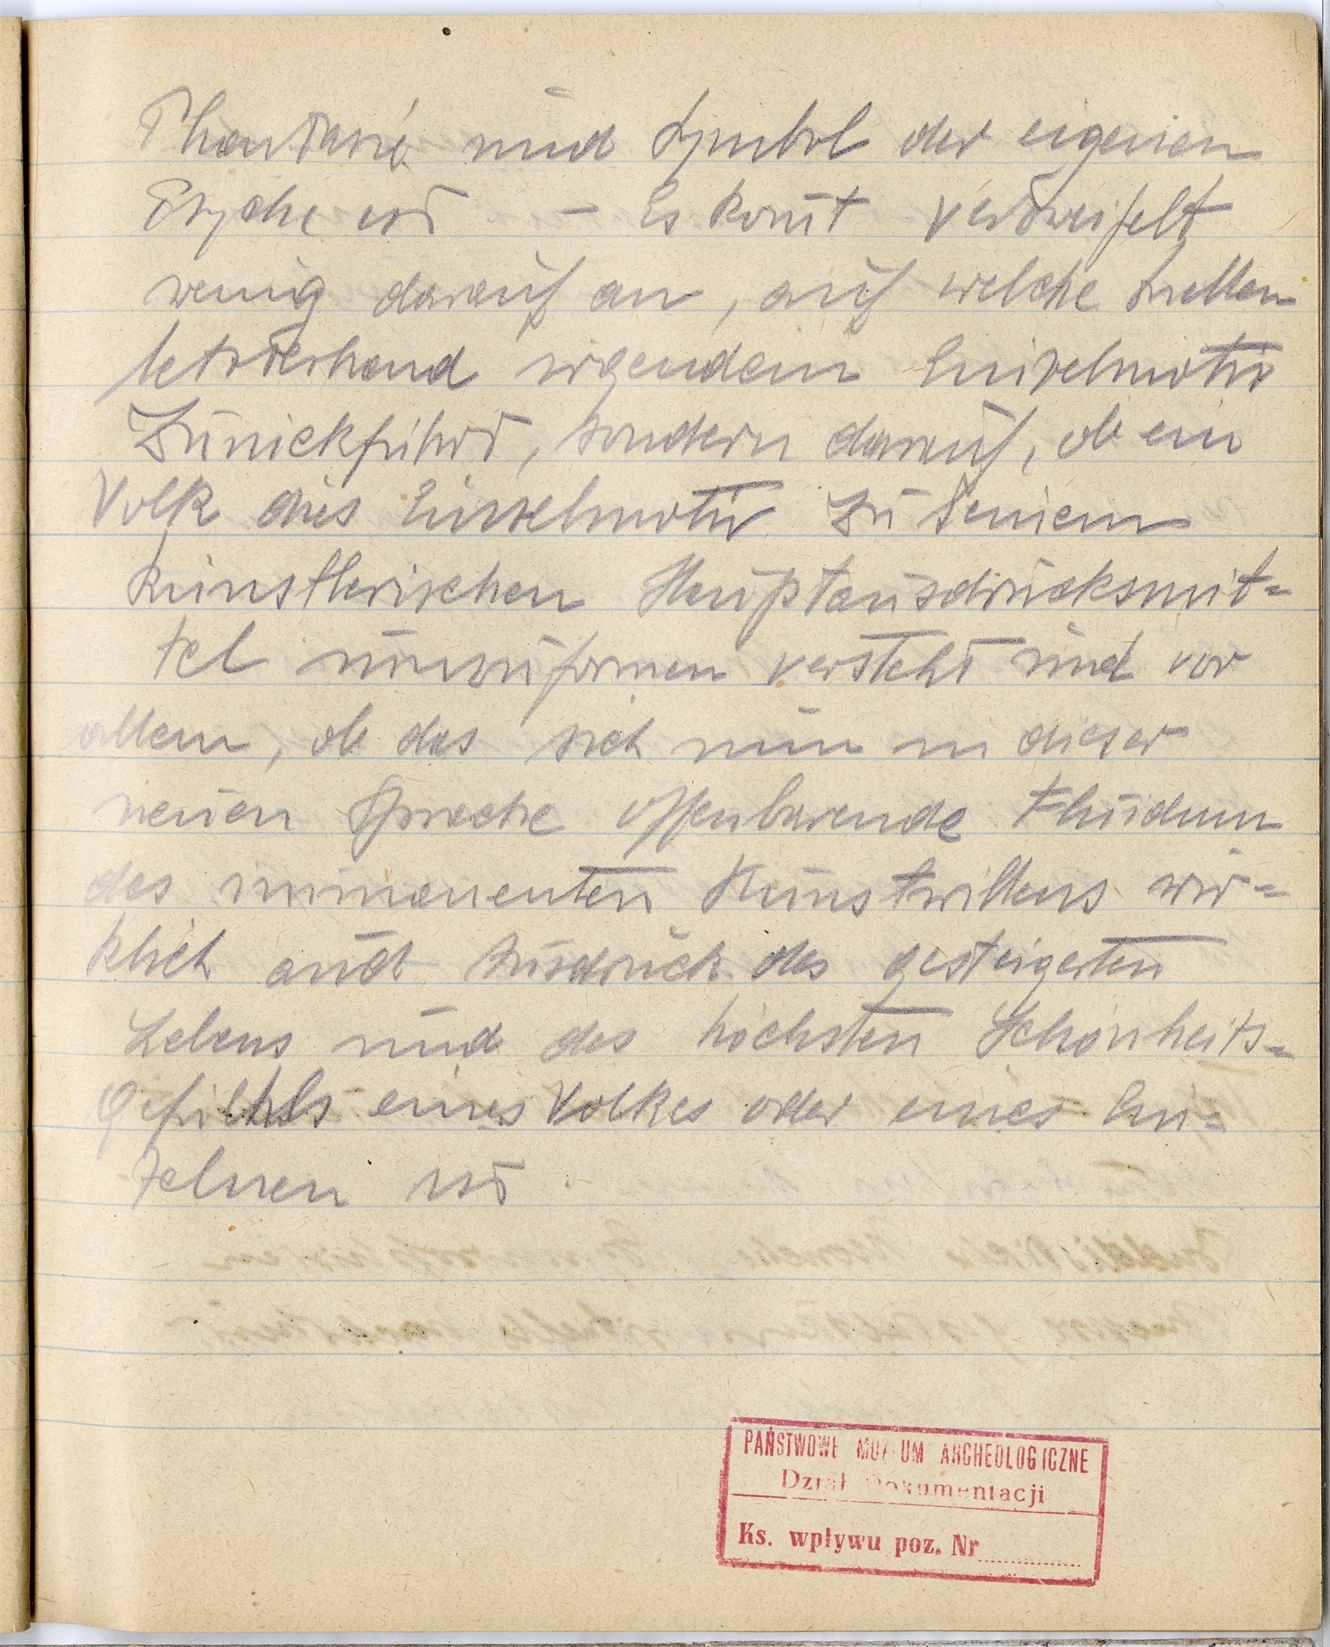 Phantasie und Symbol der eigenen
Psyche ist – Es komt verzweifelt
wenig darauf an, auf welche Quellen
letzterhand irgendein Einzelmotiv
Zurückführt, sondern darauf, ob ein
Volk dies Einzelmotiv zu seinem
künstlerischen Hauptausdrucksmit=
tel umzuformen versteht und vor
allem, ob das sich nun in dieser
neuen Sprache offenbarende Fluidum
des immanenten Kunstwillens wir=
klich auch Ausdruck des gesteigerten
Lebens und des höchsten Schönheits=
gefühls eines Volkes oder eines Ein=
zelnen ist.
PAŃSTWOWE MUZEUM ARCHEOLOGICZNE
Dział Dokumentacji
Ks. wpływu poz. Nr